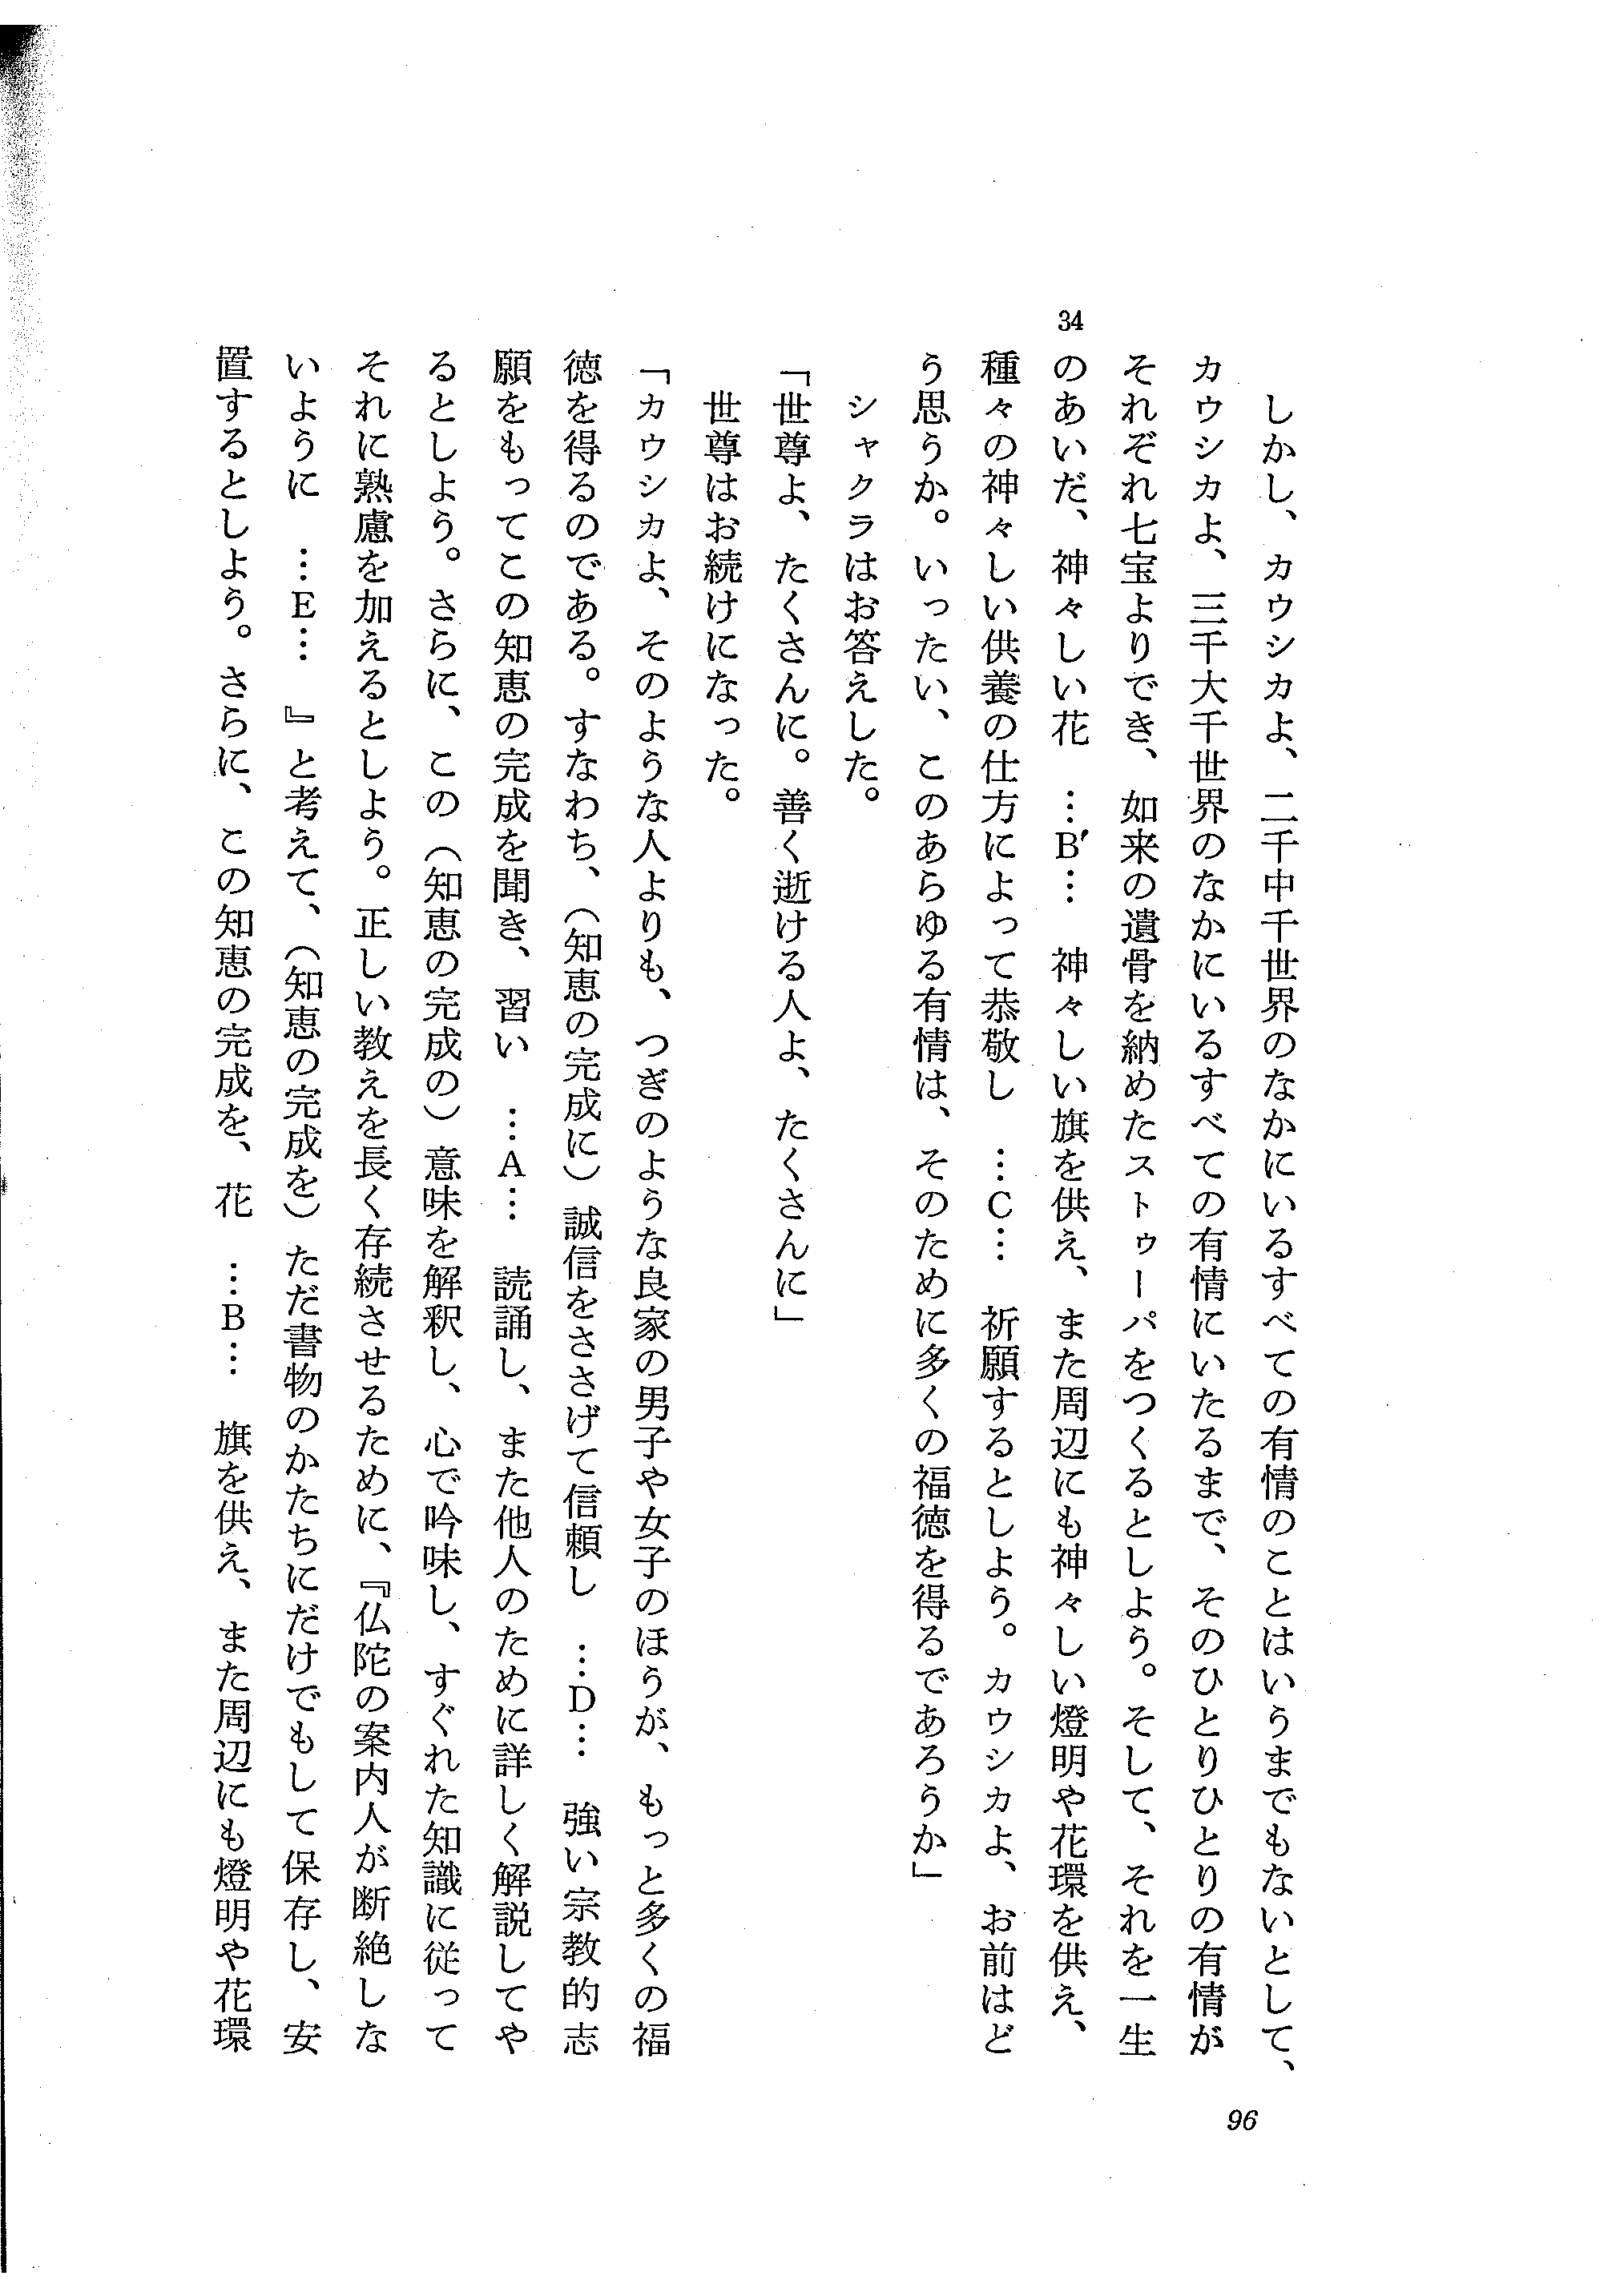 しかし、カウシカよ、二千中千世界のなかにいるすべての有情のことはいうまでもないとして、
カウシカよ、三千大千世界のなかにいるすべての有情にいたるまで、そのひとりひとりの有情が
それぞれ七宝よりでき、如来の遺骨を納めたストゥーパをつくるとしよう。そして、それを一生
34
のあいだ、神々しい花　…B′…　神々しい旗を供え、また周辺にも神々しい燈明や花環を供え、
種々の神々しい供養の仕方によって恭敬し　…C…　祈願するとしよう。カウシカよ、お前はど
う思うか。いったい、このあらゆる有情は、そのために多くの福徳を得るであろうか」
シャクラはお答えした。
「世尊よ、たくさんに。善く逝ける人よ、たくさんに」
世尊はお続けになった。
「カウシカよ、そのような人よりも、つぎのような良家の男子や女子のほうが、もっと多くの福
徳を得るのである。すなわち、（知恵の完成に）誠信をささげて信頼し　…D…　強い宗教的志
願をもってこの知恵の完成を聞き、習い　…A…　読誦し、また他人のために詳しく解説してや
るとしよう。さらに、この（知恵の完成の）意味を解釈し、心で吟味し、すぐれた知識に従って
それに熟慮を加えるとしよう。正しい教えを長く存続させるために、『仏陀の案内人が断絶しな
いように　…E…　』と考えて、（知恵の完成を）ただ書物のかたちにだけでもして保存し、安
置するとしよう。さらに、この知恵の完成を、花　…B…　旗を供え、また周辺にも燈明や花環
96